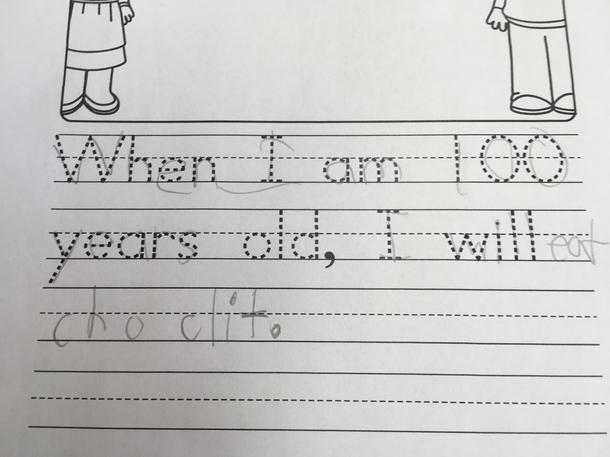 When I am 100
years old, I will eat
cho clit.